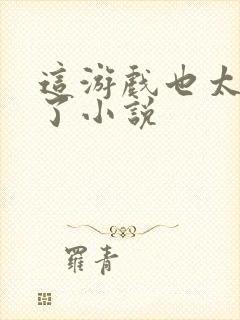 這游戲也太
了小說
羅青